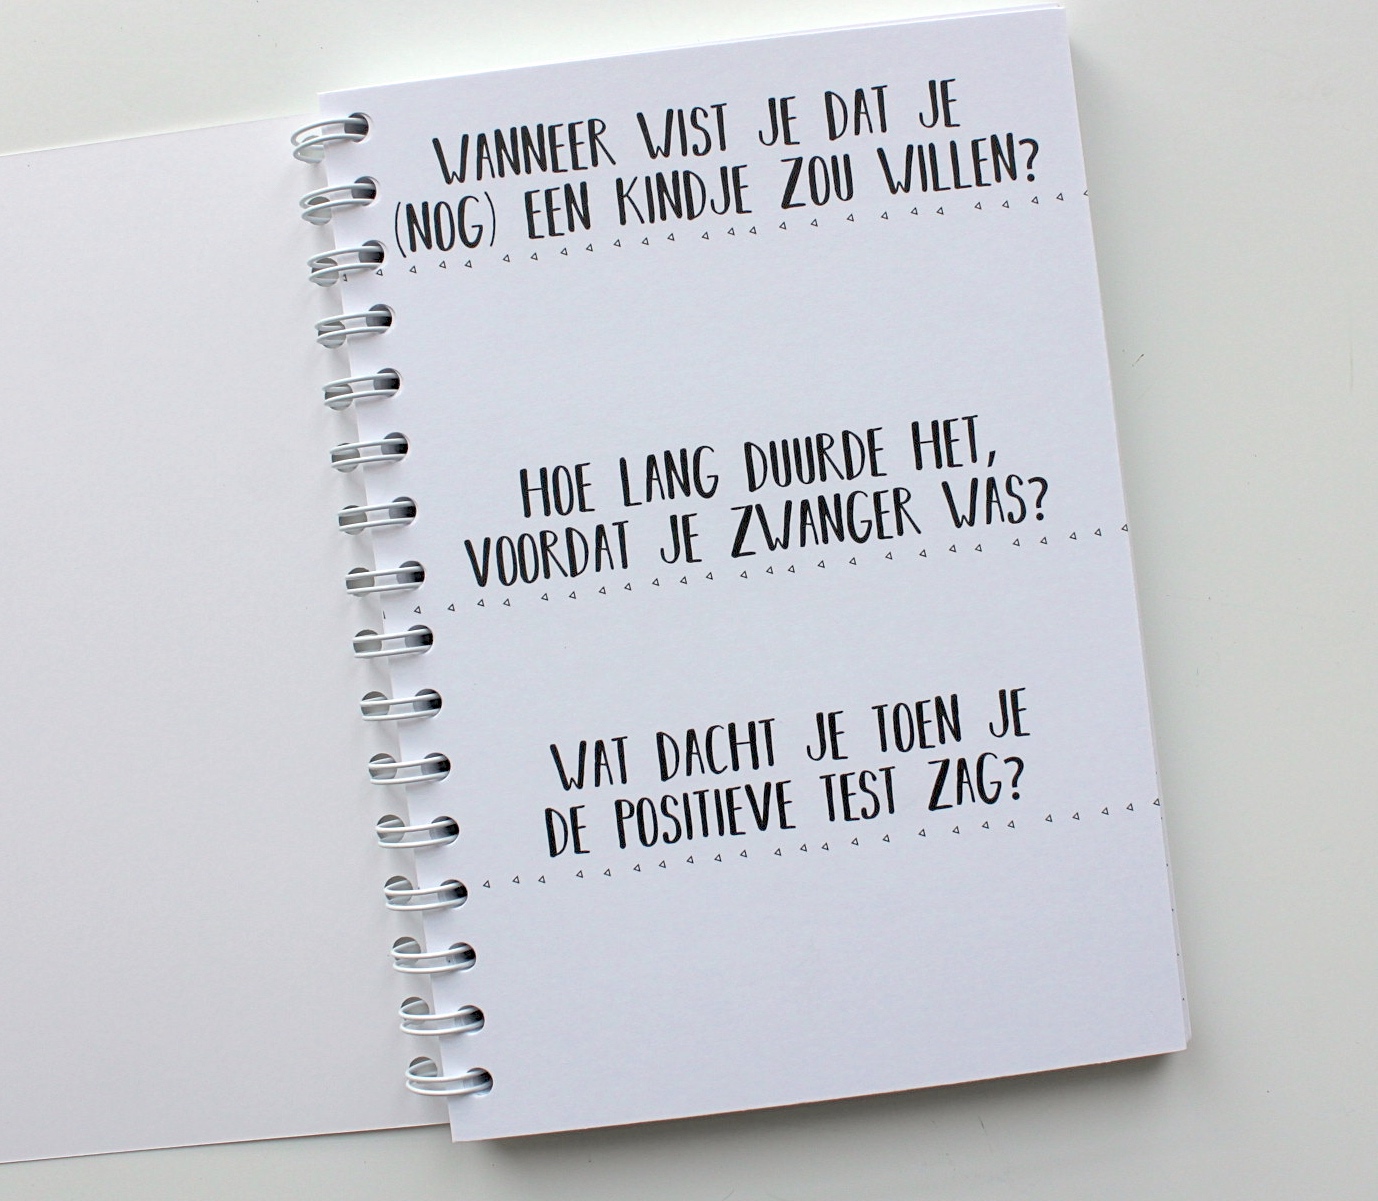 WANNEER WIST JE DAT JE
(NOG) EEN KINDJE ZOU WILLEN?
HOE LANG DUURDE HET,
VOORDAT JE ZWANGER WAS?
WAT DACHT JE TOEN JE
DE POSITIEVE TEST ZAG?